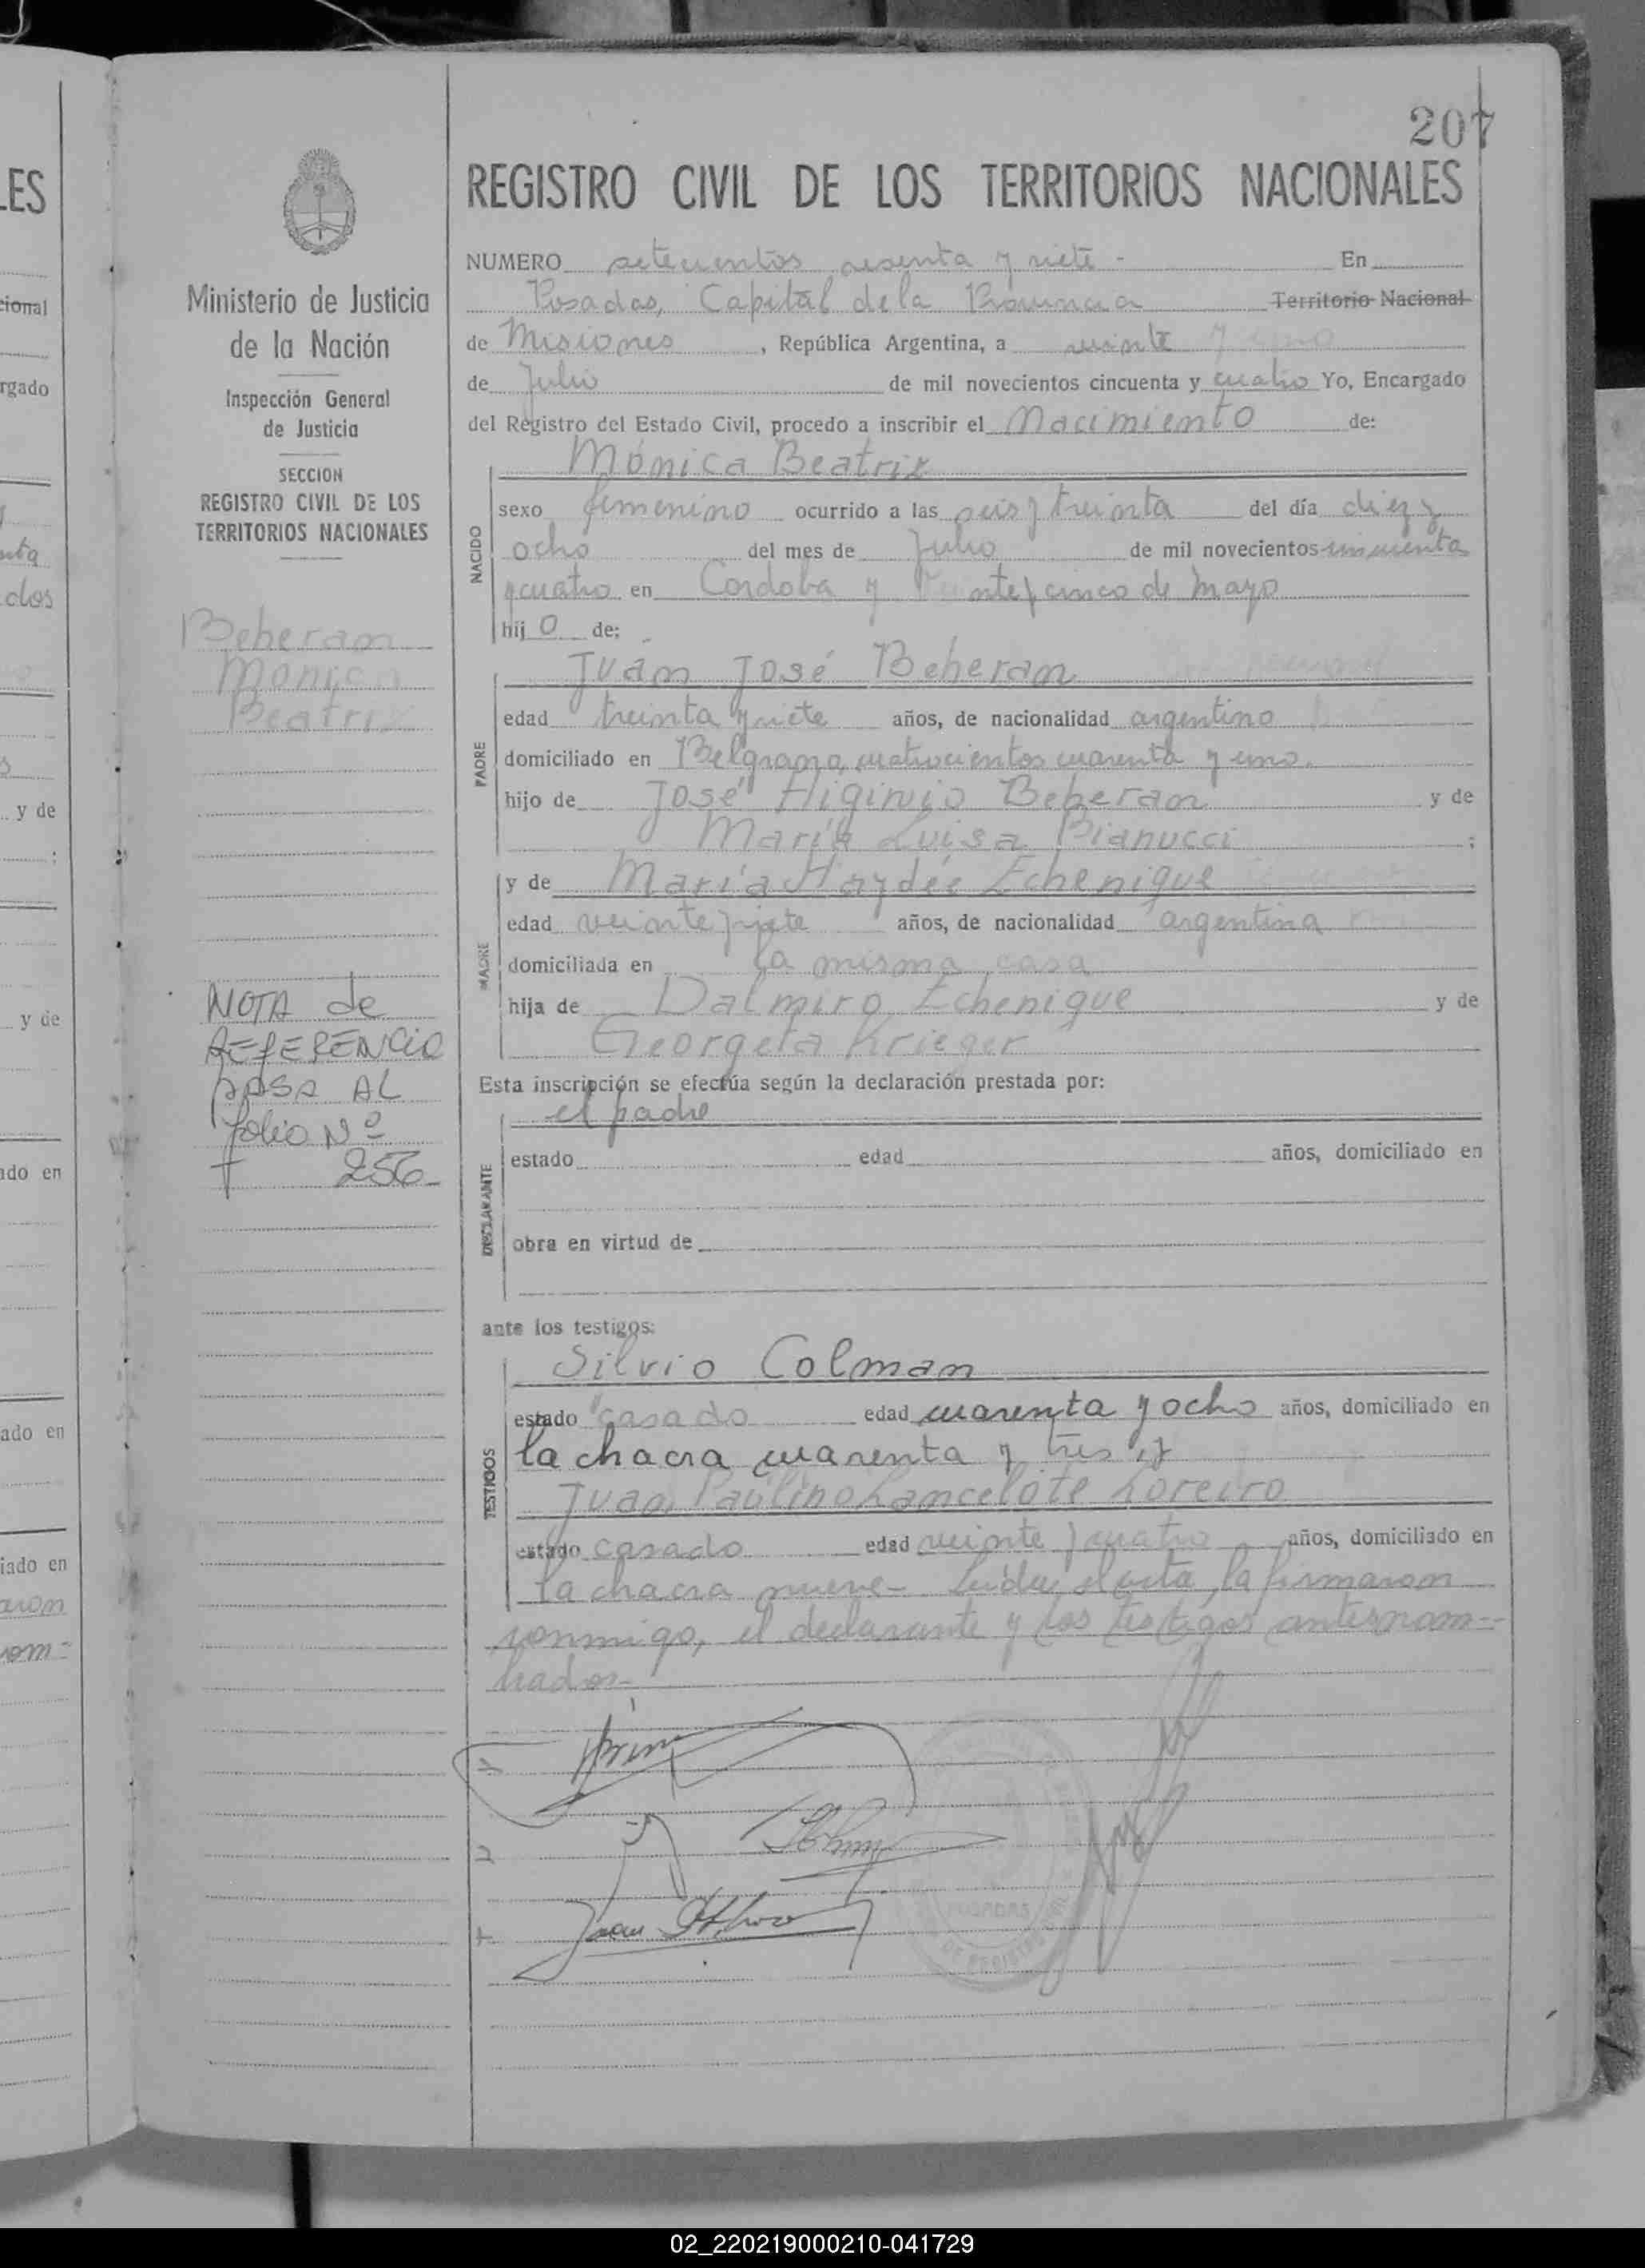 207
REGISTRO CIVIL DE LOS TERRITORIOS NACIONALES
Ministerio de Justicia
de la Nación
Inspección General
de Justicia
SECCION
REGISTRO CIVIL DE LOS
TERRITORIOS NACIONALES
Beheran
Mónica
Beatriz
NOTA de
REFERENCIA
PASA AL
folio Nº
256
NUMERO setecientos sesenta y siete - En
Posadas, Capital de la Provincia Territorio Nacional
de Misiones, República Argentina, a veinte y uno
de Julio de mil novecientos cincuenta y cuatro Yo, Encargado
del Registro del Estado Civil, procedo a inscribir el Nacimiento de:
Mónica Beatriz
NACIDO
sexo femenino ocurrido a las seis y treinta del día diez y
ocho del mes de Julio de mil novecientos cincuenta
y cuatro en Cordoba y Veinte y cinco de Mayo
hij o de:
Juan José Beheran
PADRE
edad treinta y siete años, de nacionalidad argentino
domiciliado en Belgrano, cuatrocientos cuarenta y uno.
hijo de José Higinio Beheran y de
María Luisa Pianucci ;
y de María Haydée Echenique
MADRE
edad veinte y siete años, de nacionalidad argentina
domiciliada en la misma casa
hija de Dalmiro Echenique y de
Georgeta Krieger
Esta inscripción se efectúa según la declaración prestada por:
el padre
DECLARANTE
estado edad años, domiciliado en
obra en virtud de
ante los testigos:
Silvio Colman
TESTIGOS
estado casado edad cuarenta y ocho años, domiciliado en
la chacra cuarenta y tres y
Juan Paulino Lancelote Loreiro
estado casado edad veinte y cuatro años, domiciliado en
la chacra nueve- Leída el acta, la firmaron
conmigo, el declarante y los testigos antesnom-
brados-
POSADAS
ES
cional
rgado
dos
y de
y de
ado en
ado en
iado en
aron
nom-
02_220219000210-041729